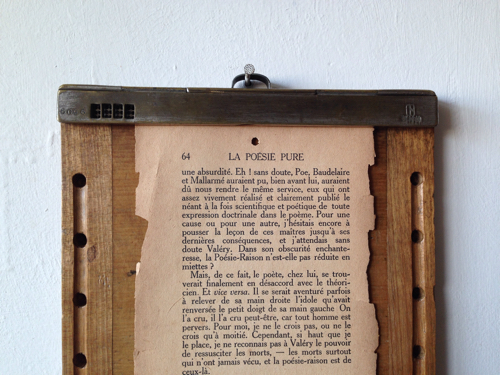 64 LA POÉSIE PURE
une absurdité. Eh ! sans doute, Poe, Baudelaire
et Mallarmé auraient pu, bien avant lui, auraient
dû nous rendre le même service, eux qui ont
assez vivement réalisé et clairement publié le
néant à la fois scientifique et poétique de toute
expression doctrinale dans le poème. Pour une
cause ou pour une autre, j'hésitais encore à
pousser la leçon de ces maîtres jusqu'à ses
dernières conséquences, et j'attendais sans
doute Valéry. Dans son obscurité enchante-
resse, la Poésie-Raison n'est-elle pas réduite en
miettes ?
Mais, de ce fait, le poète, chez lui, se trou-
verait finalement en désaccord avec le théori-
cien. Et vice versa. Il se serait aventuré parfois
à relever de sa main droite l'idole qu'avait
renversée le petit doigt de sa main gauche On
l'a cru, il l'a cru peut-être, car tout homme est
pervers. Pour moi, je ne le crois pas, ou ne le
crois qu'à moitié. Cependant, si haut que je
le place, je ne reconnais pas à Valéry le pouvoir
de ressusciter les morts, — les morts surtout
qui n'ont jamais vécu, et la poésie-raison est de
ceux-là.